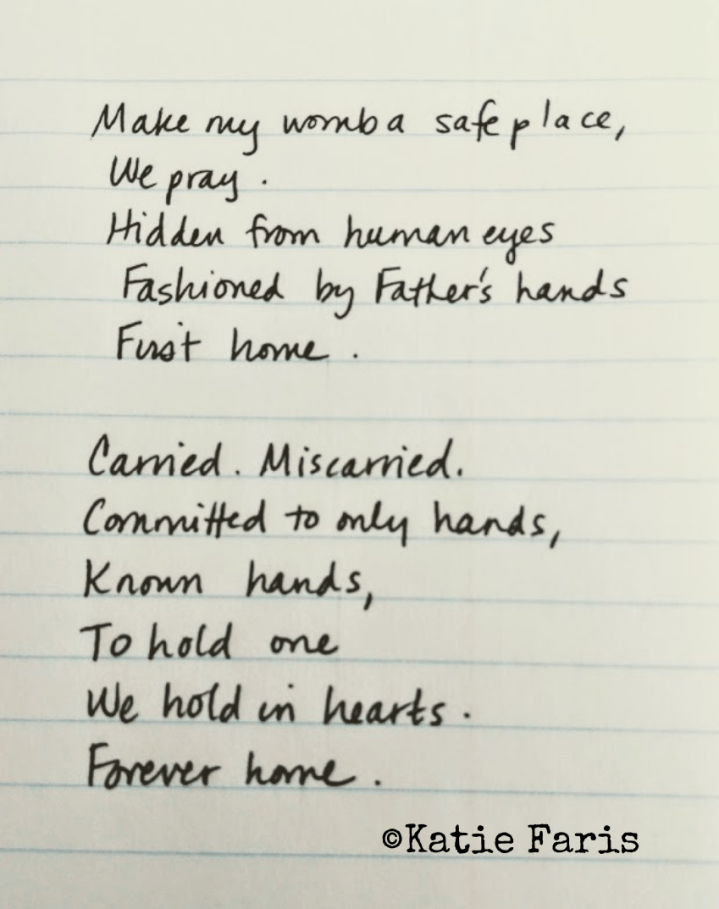 Make my womb a safe place,
We pray.
Hidden from human eyes
Fashioned by Father's hands
First home.
Carried. Miscarried.
Committed to only hands,
Known hands,
To hold one
We hold in hearts.
Forever home.
©Katie Faris